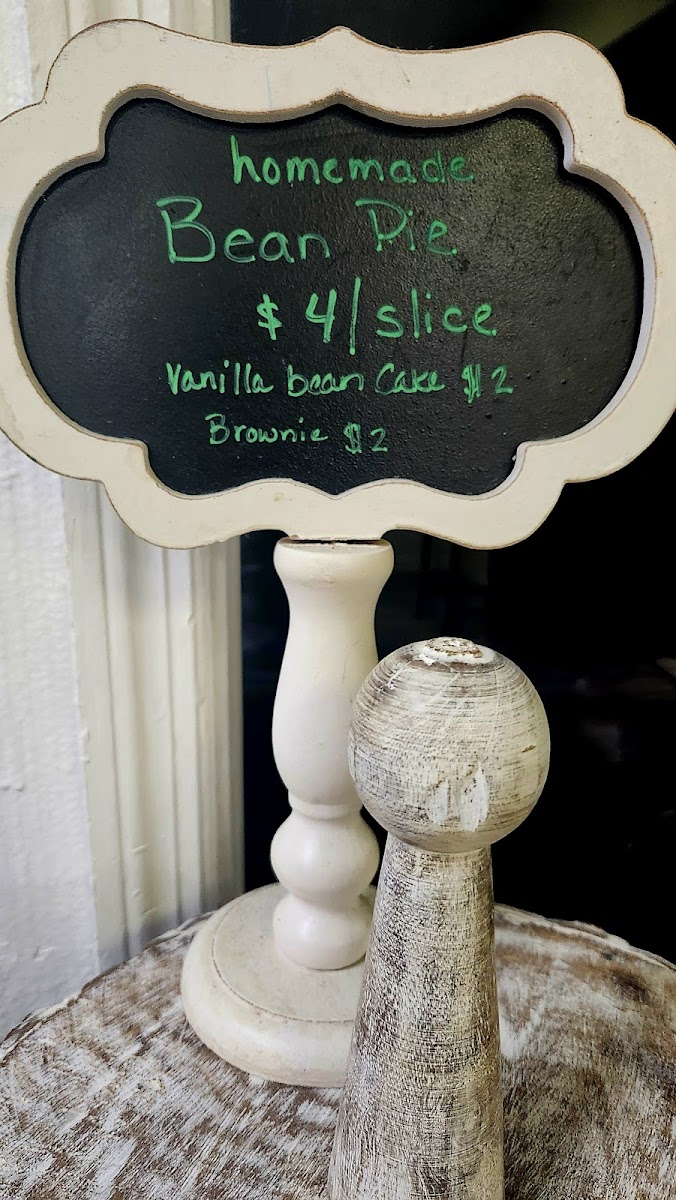 homemade
Bean Pie
$4/slice
Vanilla bean Cake $2
Brownie $2